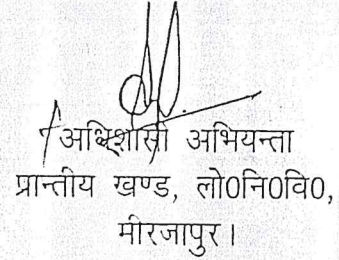 अधिशासी अभियन्ता
प्रान्तीय खण्ड, लो0नि0वि0,
मीरजापुर।